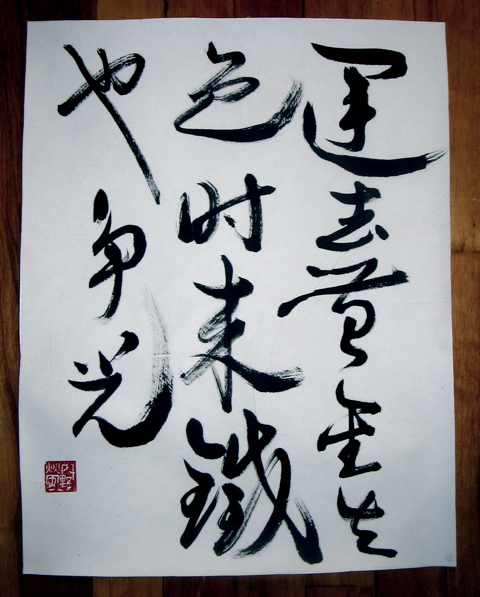 運去黄金失
色时来鐵
也争光